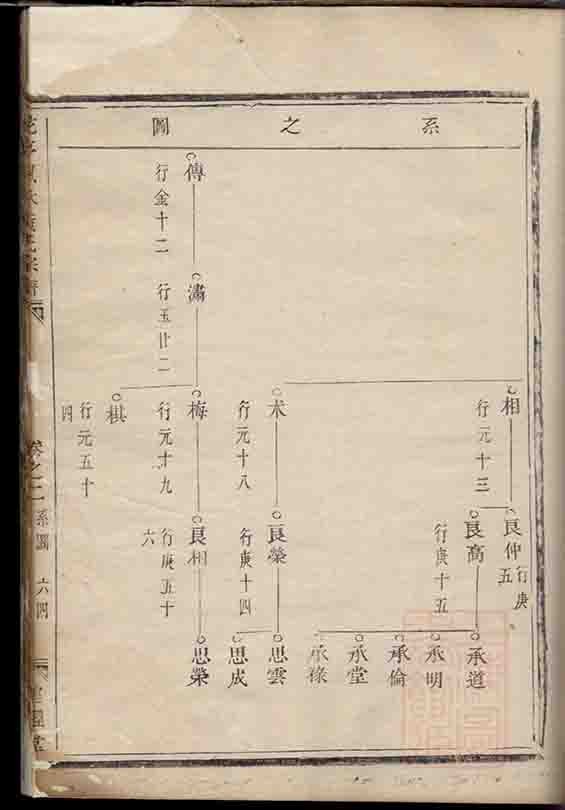 系之圖
相
行元十三
良仲
行庚五
良高
行庚十五
承道
承明
承倫
承堂
承祿
木
行元十八
良榮
行庚十四
思雲
思成
傳
行金十二
潚
行玉廿二
梅
行元十九
良相
行庚五十六
思榮
棋
行元五十四
卷之二
系圖
六四